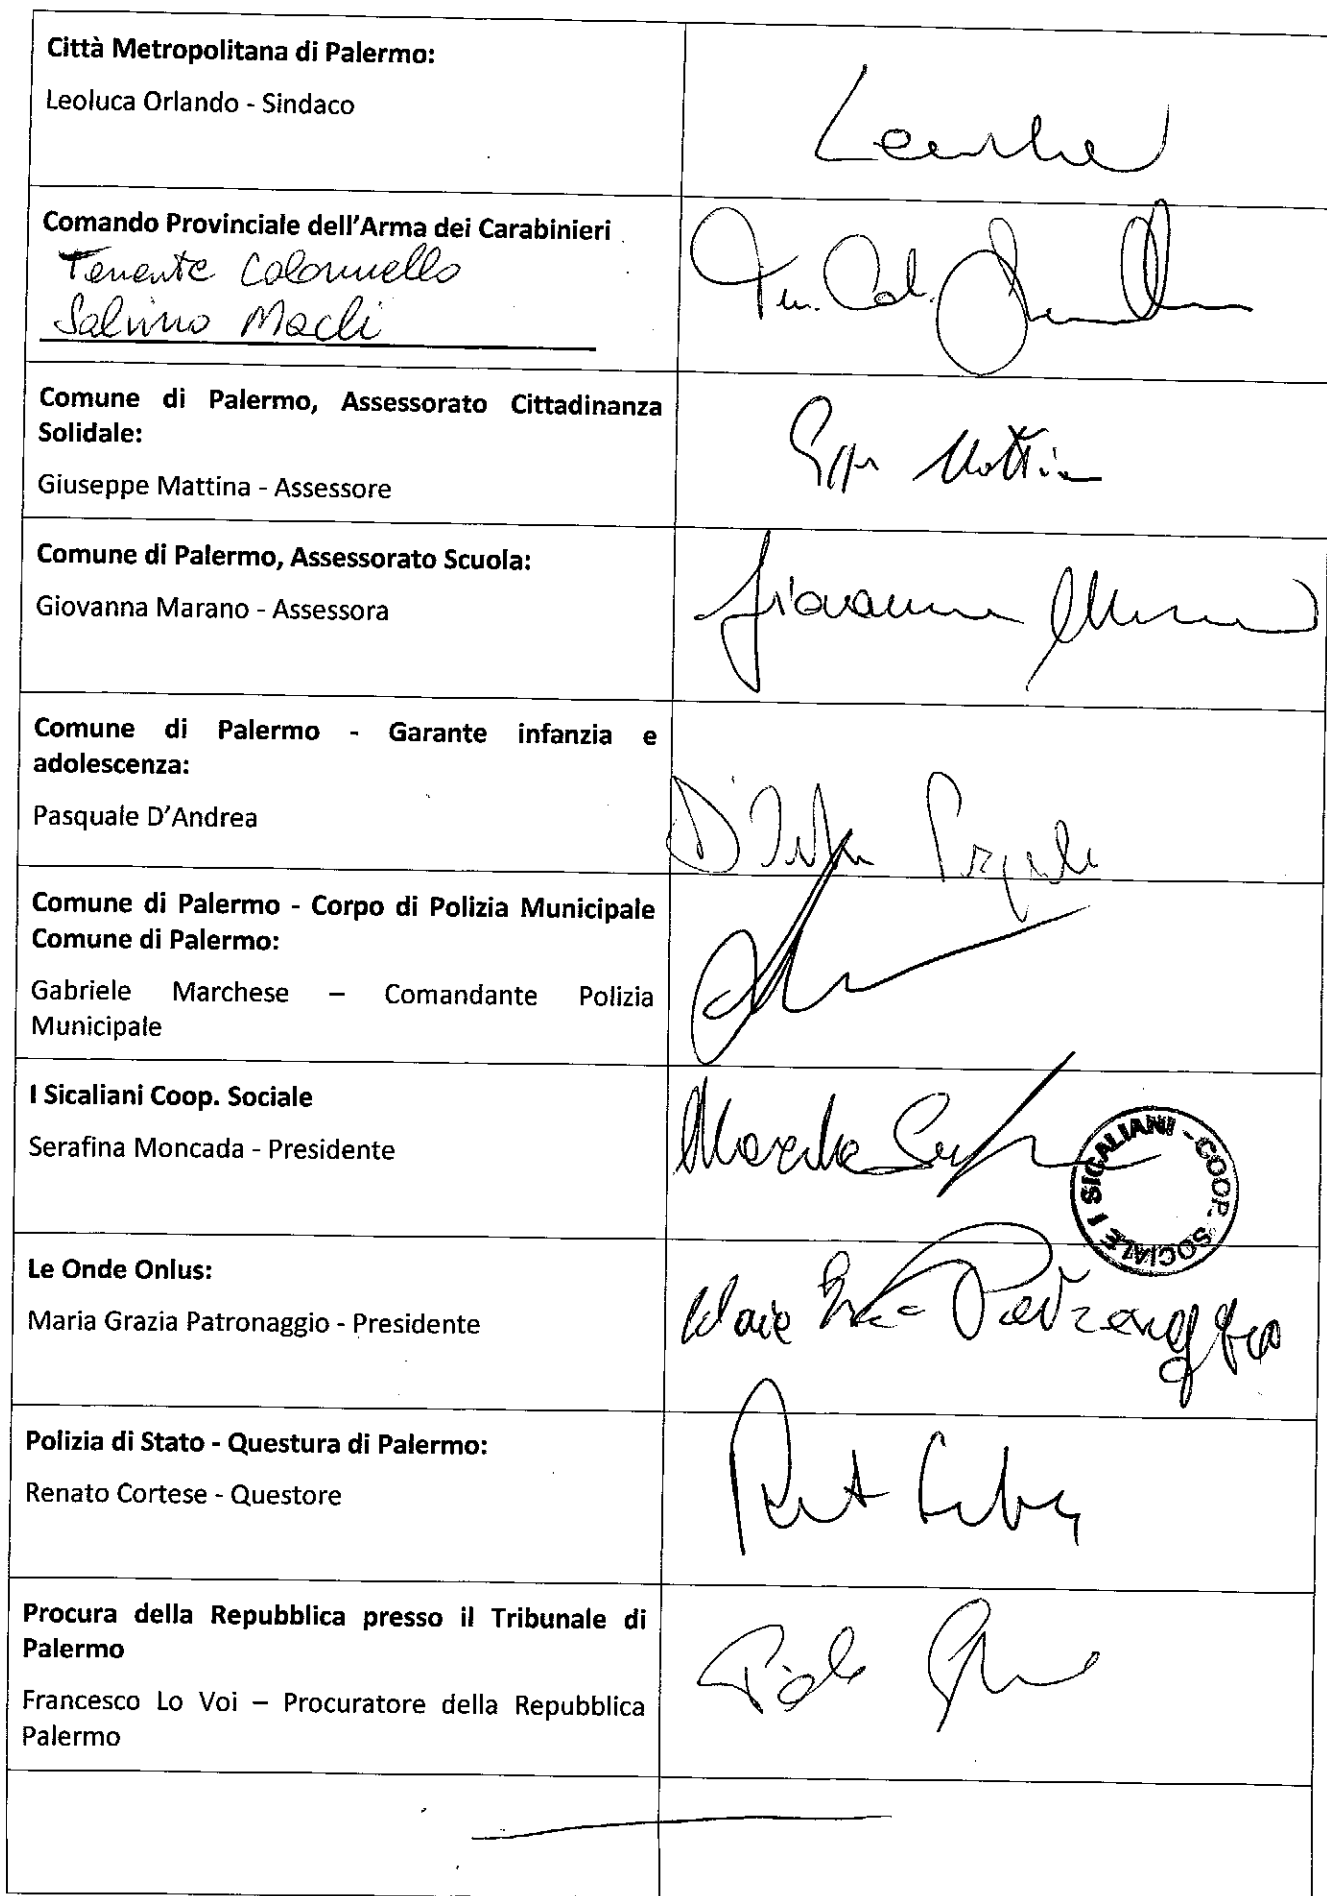 Città Metropolitana di Palermo:
Leoluca Orlando - Sindaco
Comando Provinciale dell'Arma dei Carabinieri
Tenente Colonnello
Salvino Macli
Ten. Col.
Comune di Palermo, Assessorato Cittadinanza
Solidale:
Giuseppe Mattina - Assessore
Mattina
Comune di Palermo, Assessorato Scuola:
Giovanna Marano - Assessora
Giovanna
Comune di Palermo - Garante infanzia e
adolescenza:
Pasquale D'Andrea
Comune di Palermo - Corpo di Polizia Municipale
Comune di Palermo:
Gabriele Marchese – Comandante Polizia
Municipale
I Sicaliani Coop. Sociale
Serafina Moncada - Presidente
I SICALIANI - COOP. SOCIALE
Le Onde Onlus:
Maria Grazia Patronaggio - Presidente
Polizia di Stato - Questura di Palermo:
Renato Cortese - Questore
Procura della Repubblica presso il Tribunale di
Palermo
Francesco Lo Voi – Procuratore della Repubblica
Palermo